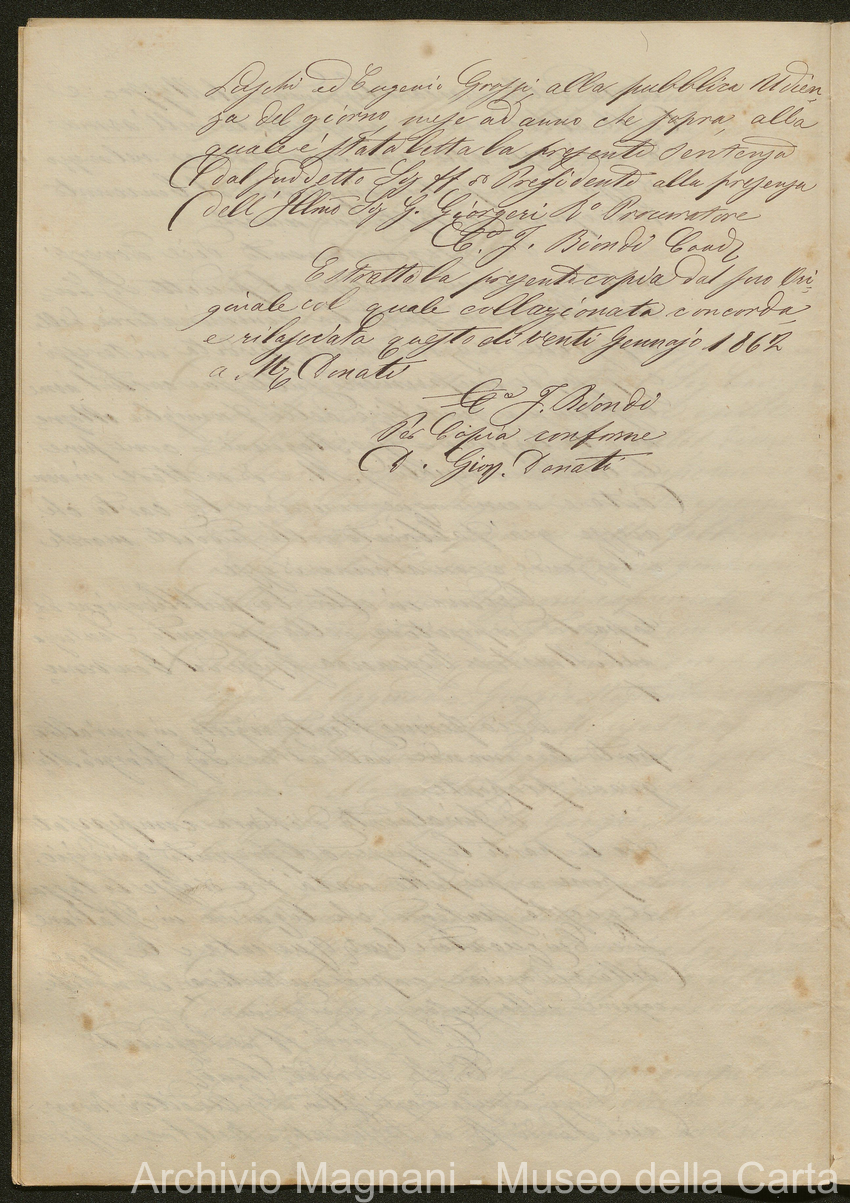 Laschi ed Eugenio Grossi, alla pubblica Udien-
za del giorno, mese ad anno che sopra, alla
quale è stata letta la presente Sentenza
dal suddetto Sig ff di Presidente alla presenza
dell' Illmo Sig G. Giorgeri Ro Procuratore
F. Biondi Coad
Estratta la presente copia dal suo Ori-
ginale col quale collazionata concorda
e rilasciata questo di venti Gennajo 1862
a Mr Donati
F. Biondi
Per Copia conforme
D. Giov. Donati
Archivio Magnani - Museo della Carta